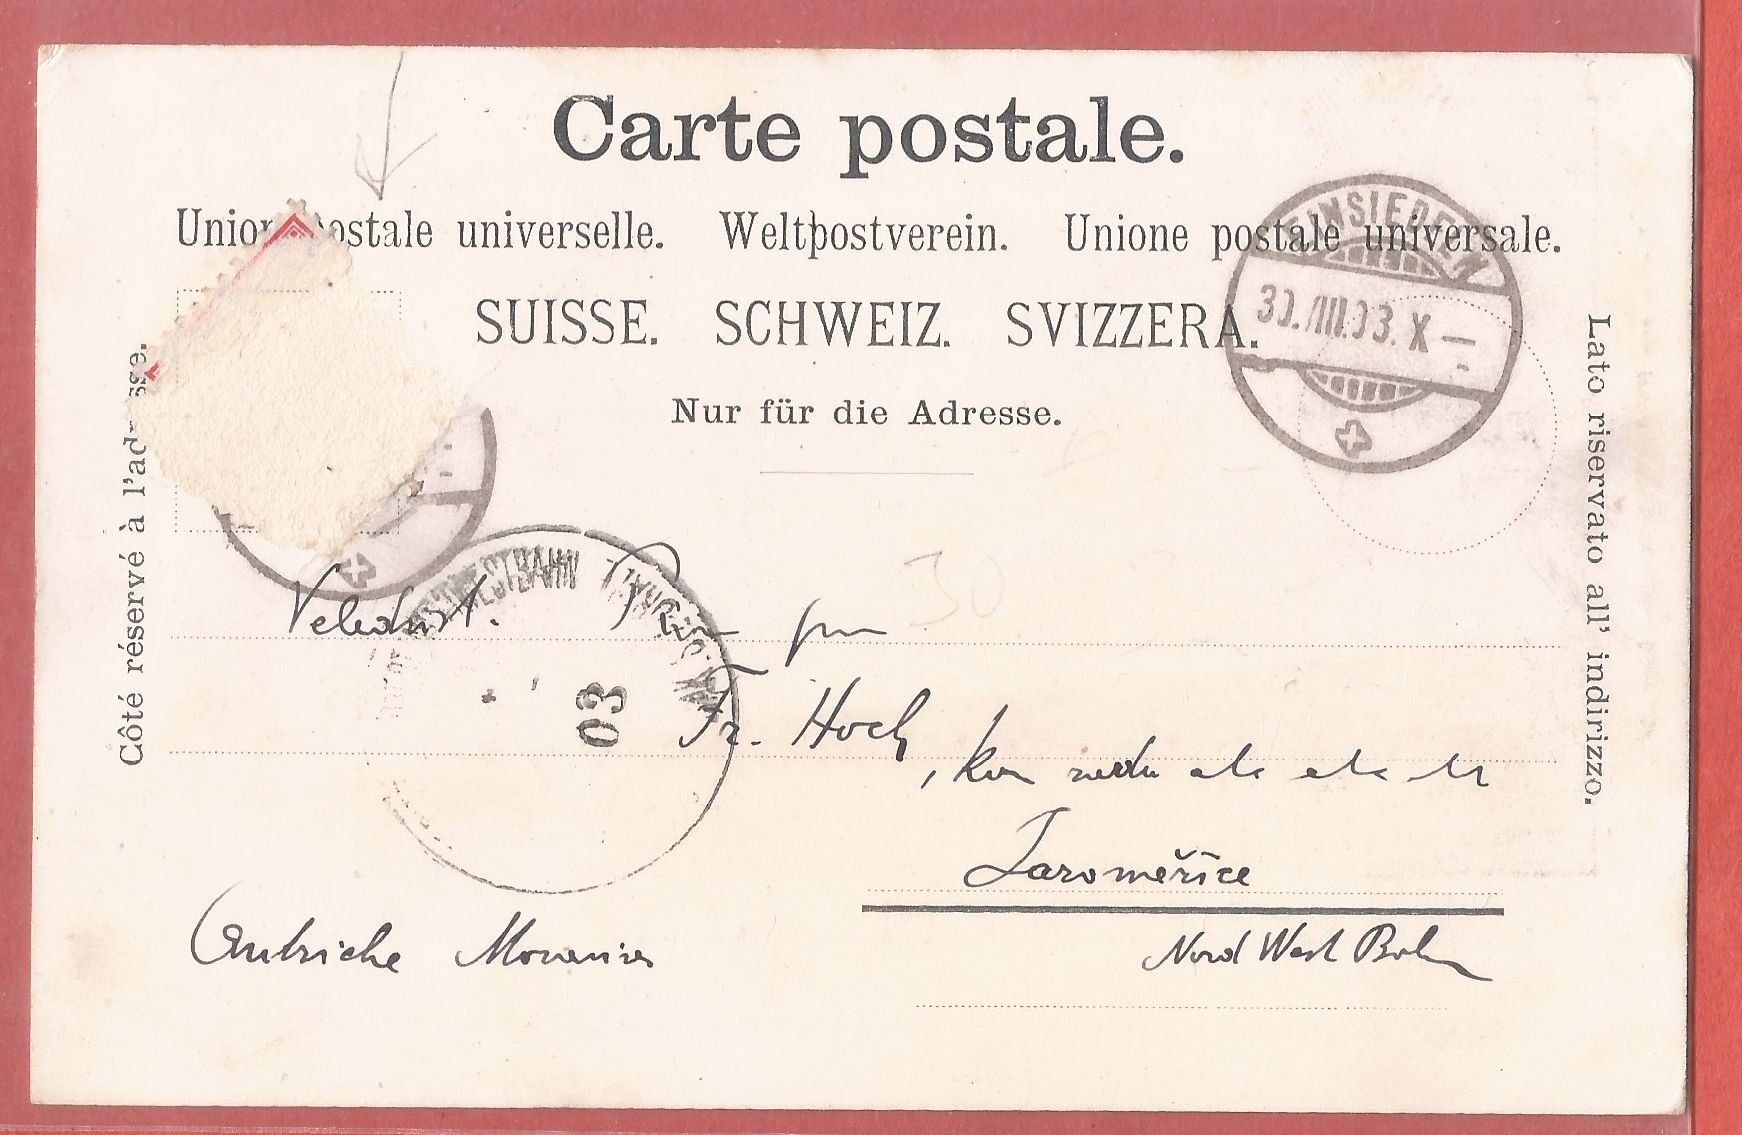 Carte postale.
Union postale universelle. Weltpostverein. Unione postale universale.
SUISSE. SCHWEIZ. SVIZZERA.
Nur für die Adresse.
Côté réservé à l'adresse.
Lato riservato all' indirizzo.
EINSIEDELN
30.VIII.03.X—
03
30
Veledůst. Pan
Fr. Hoch,
Jaroměřice
Nord West Bahn
Autriche